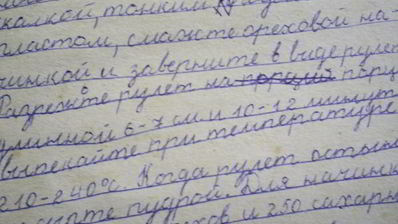 скалкой, тонким
пластом, смажте ореховой на-
чинкой и заверните в виде рулет
Разрежьте рулет на порци
длинной 6-7 см и 10-12 минут
выпекайте при температуре
210-240°с. Когда рулет остын
пудрой. Для начинк
ков и 250 сахарн